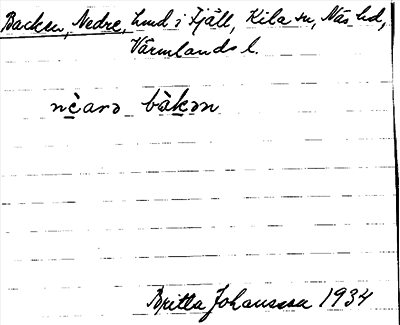 Backen, Nedre, hmd i Fjäll, Kila sn, Näs hd,
Värmlands l.
nèarə bàkən
Britta Johansson 1934